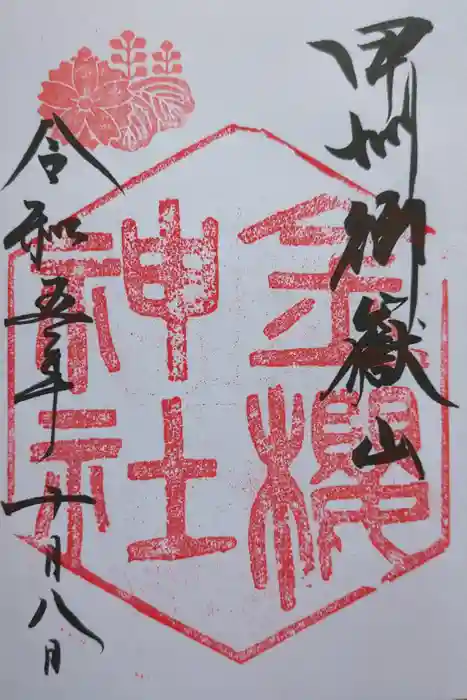 甲州御嶽山
金櫻神社
令和五年十月八日